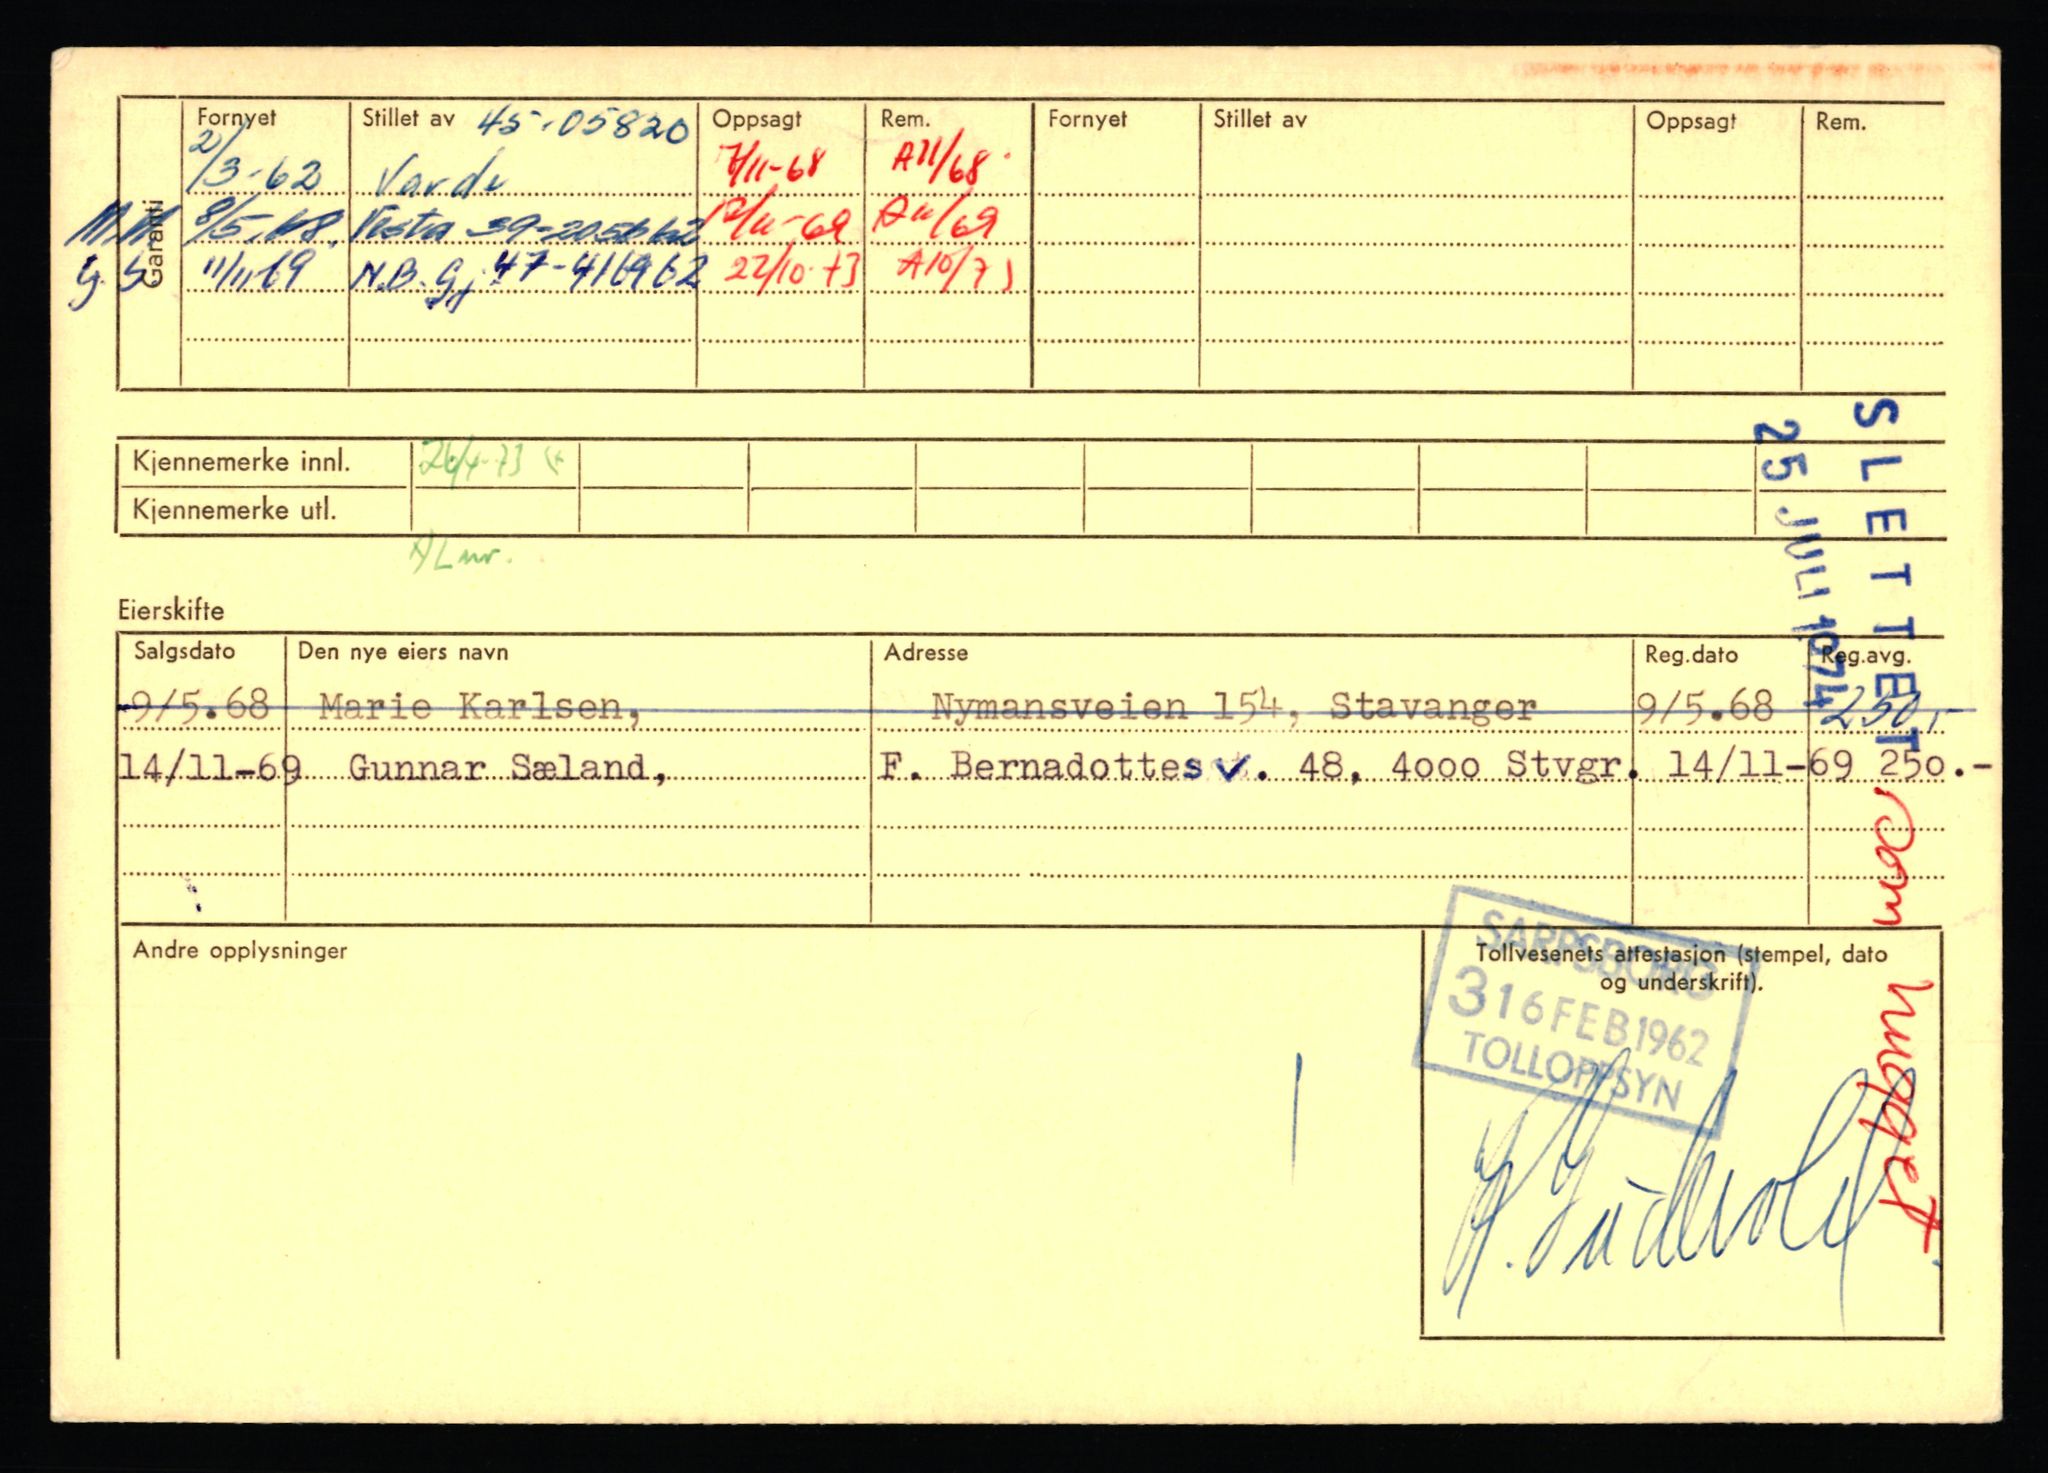 Fornyet Stillet av 45-05820 Oppsagt Rem. Fornyet Stillet av Oppsagt Rem.
2/3-62 Varde 7/11-68 A11/68
Garanti
8/5-68. Vesta 69 /69
G. S 11/11 69 N.B.Gj. 47-416962 22/10-73 A10/73
Kjennemerke innl. 26/4-73
Kjennemerke utl.
SLETTET
25 JULI 1974
Eierskifte
Salgsdato Den nye eiers navn Adresse Reg.dato Reg.avg.
9/5.68 Marie Karlsen, Nymansveien 154, Stavanger 9/5.68 250,-
14/11-69 Gunnar Sæland, F. Bernadottes v. 48, 4000 Stvgr. 14/11-69 250.-
Andre opplysninger
Tollvesenets attestasjon (stempel, dato
og underskrift).
SARPSBORG
3 16 FEB 1962
TOLLOPPSYN